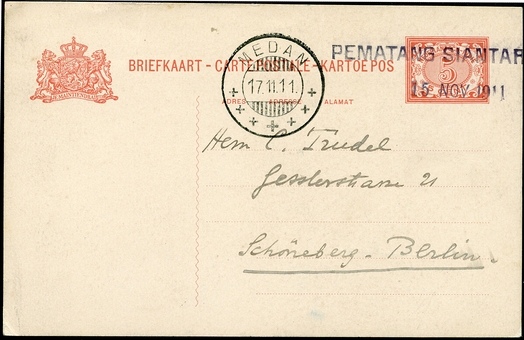 PEMATANG SIANTAR
15 NOV 1911
MEDAN
17.11.11.
BRIEFKAART - CARTE POSTALE - KARTOEPOS
ADRES ADRESSE ALAMAT
5
Herrn C. Trudel
Gesslerstrasse 21
Schöneberg - Berlin.